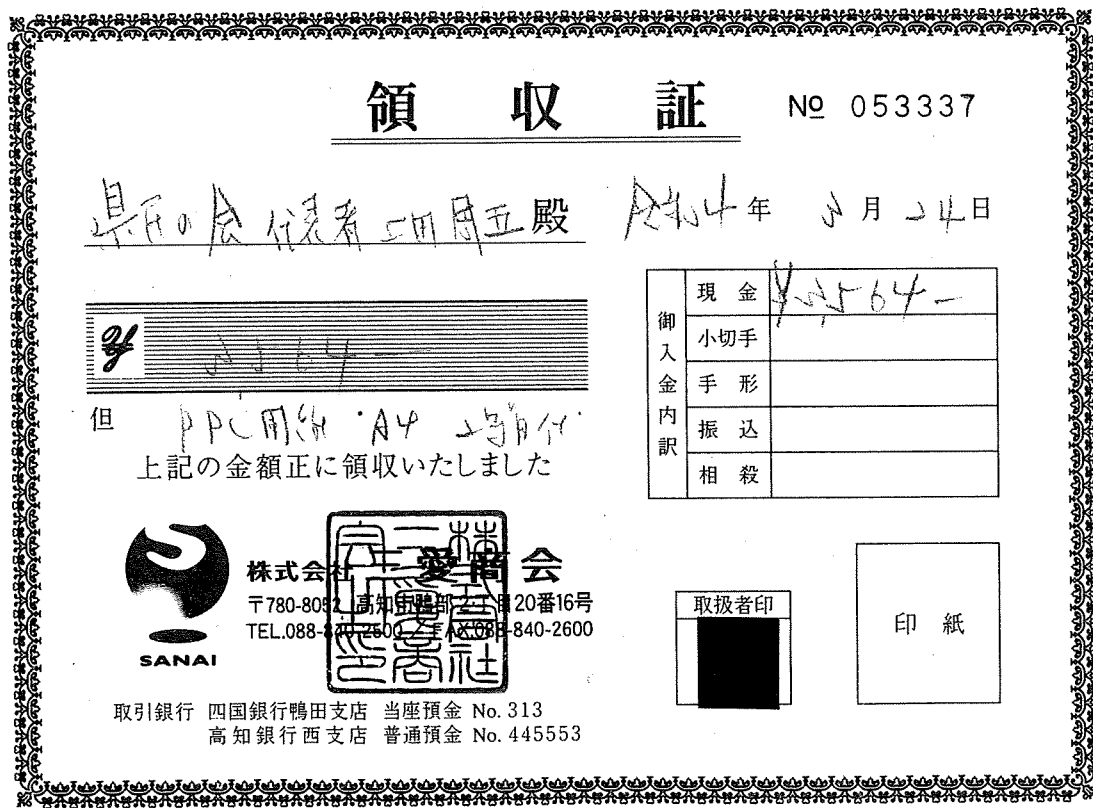 領収証
No 053337
県民の会 代表者 殿
令和4年 月24日
¥
但 PPC用紙 A4
上記の金額正に領収いたしました
御入金内訳
現金
小切手
手形
振込
相殺
SANAI
株式会社三愛商会
〒780-8052 高知市鴨部2丁目20番16号
TEL.088-840-2500 / FAX.088-840-2600
取扱者印
印紙
取引銀行 四国銀行鴨田支店 当座預金 No. 313
高知銀行西支店 普通預金 No. 445553